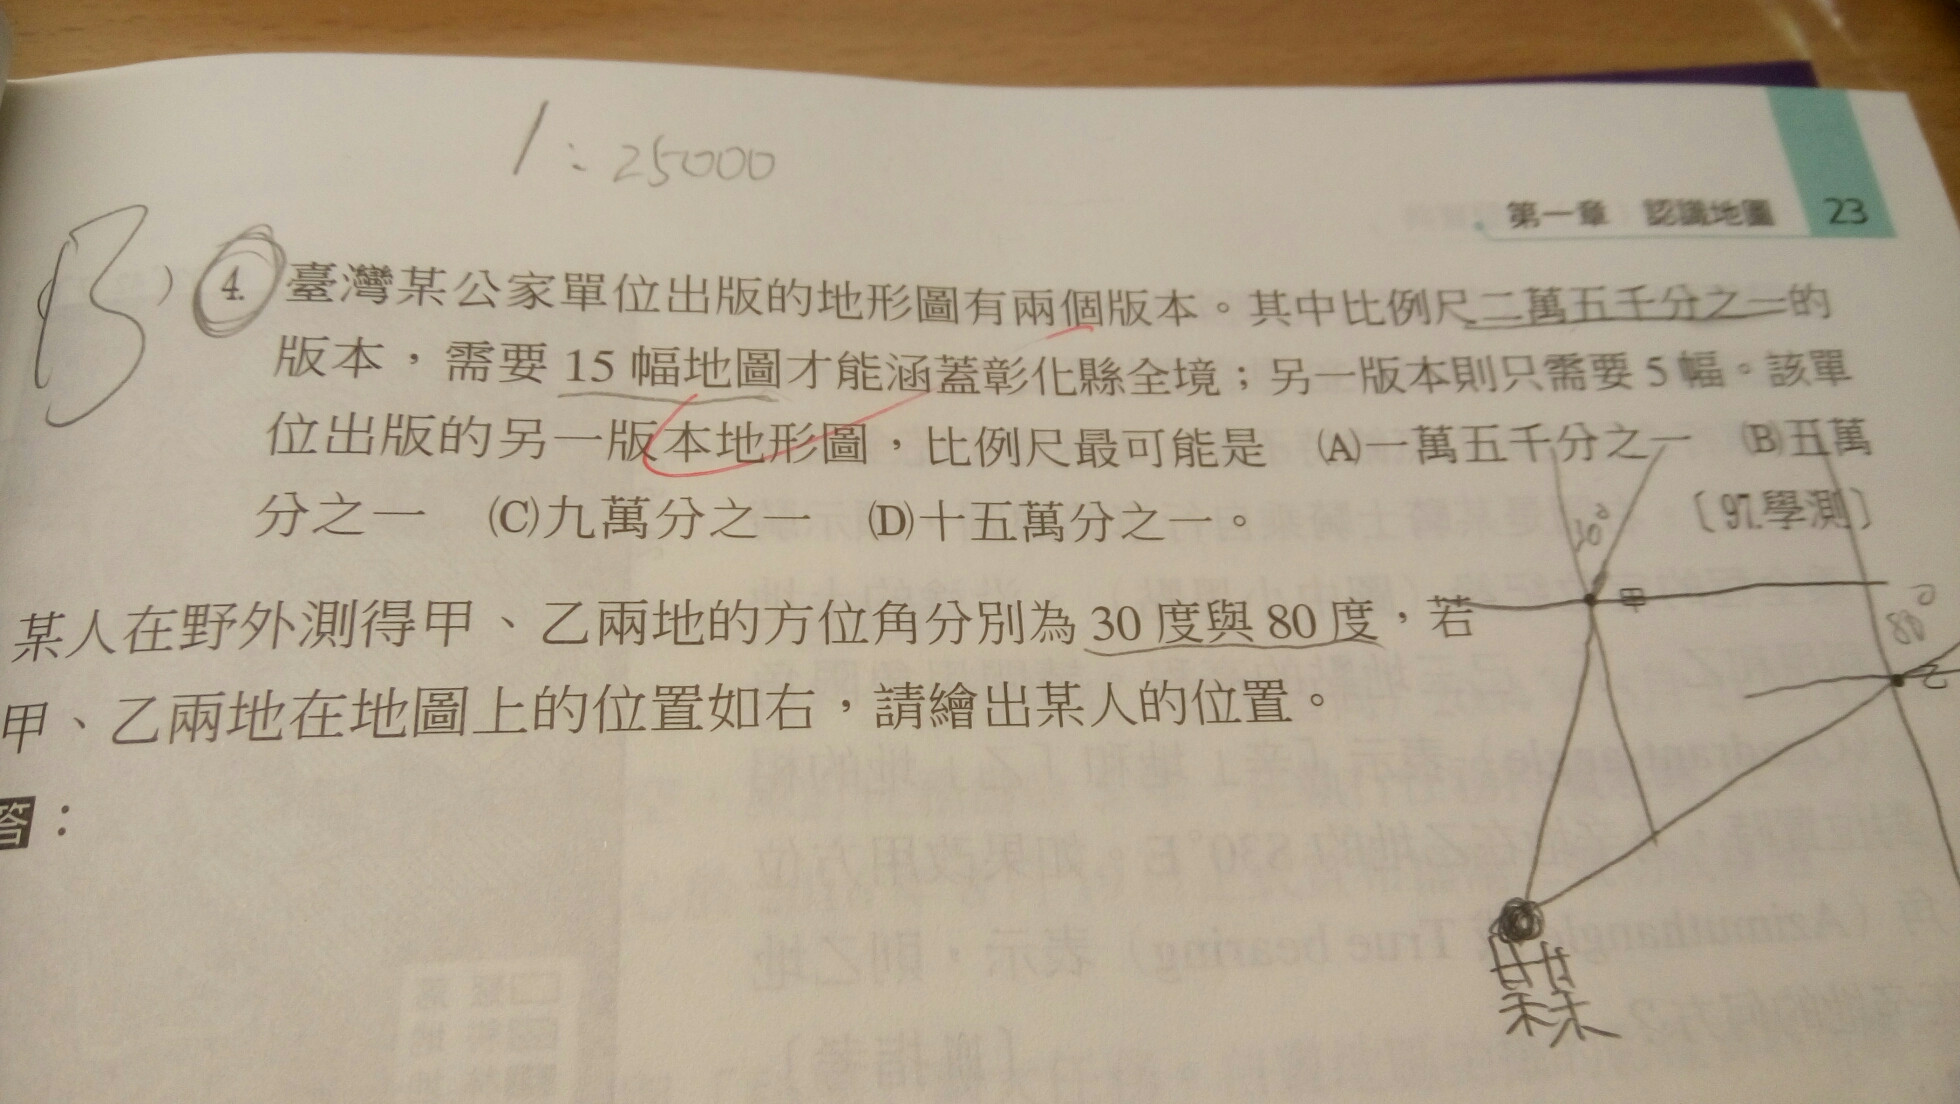 1:25000
第一章 認識地圖 23
B) 4. 臺灣某公家單位出版的地形圖有兩個版本。其中比例尺二萬五千分之一的
版本，需要 15 幅地圖才能涵蓋彰化縣全境；另一版本則只需要 5 幅。該單
位出版的另一版本地形圖，比例尺最可能是 (A)一萬五千分之一 (B)五萬
分之一 (C)九萬分之一 (D)十五萬分之一。 〔97.學測〕
某人在野外測得甲、乙兩地的方位角分別為 30 度與 80 度，若
甲、乙兩地在地圖上的位置如右，請繪出某人的位置。
答：
甲
80°
乙